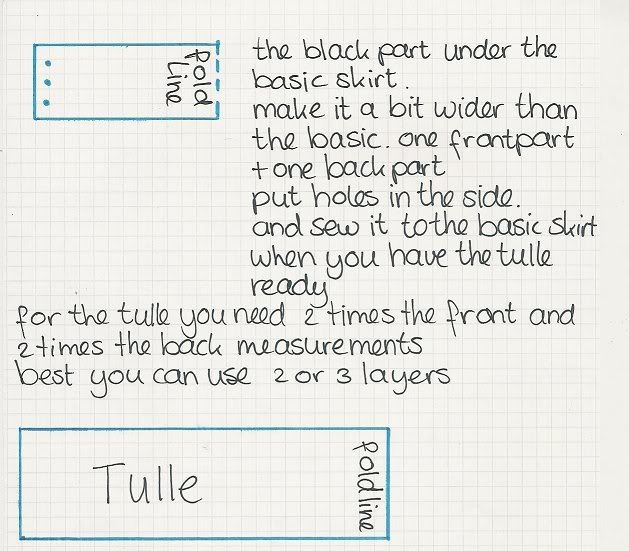 Fold
Line
the black part under the
basic skirt.
make it a bit wider than
the basic. one frontpart
+ one back part
put holes in the side.
and sew it to the basic skirt
when you have the tulle
ready
for the tulle you need 2 times the front and
2 times the back measurements
best you can use 2 or 3 layers
Tulle
Foldline